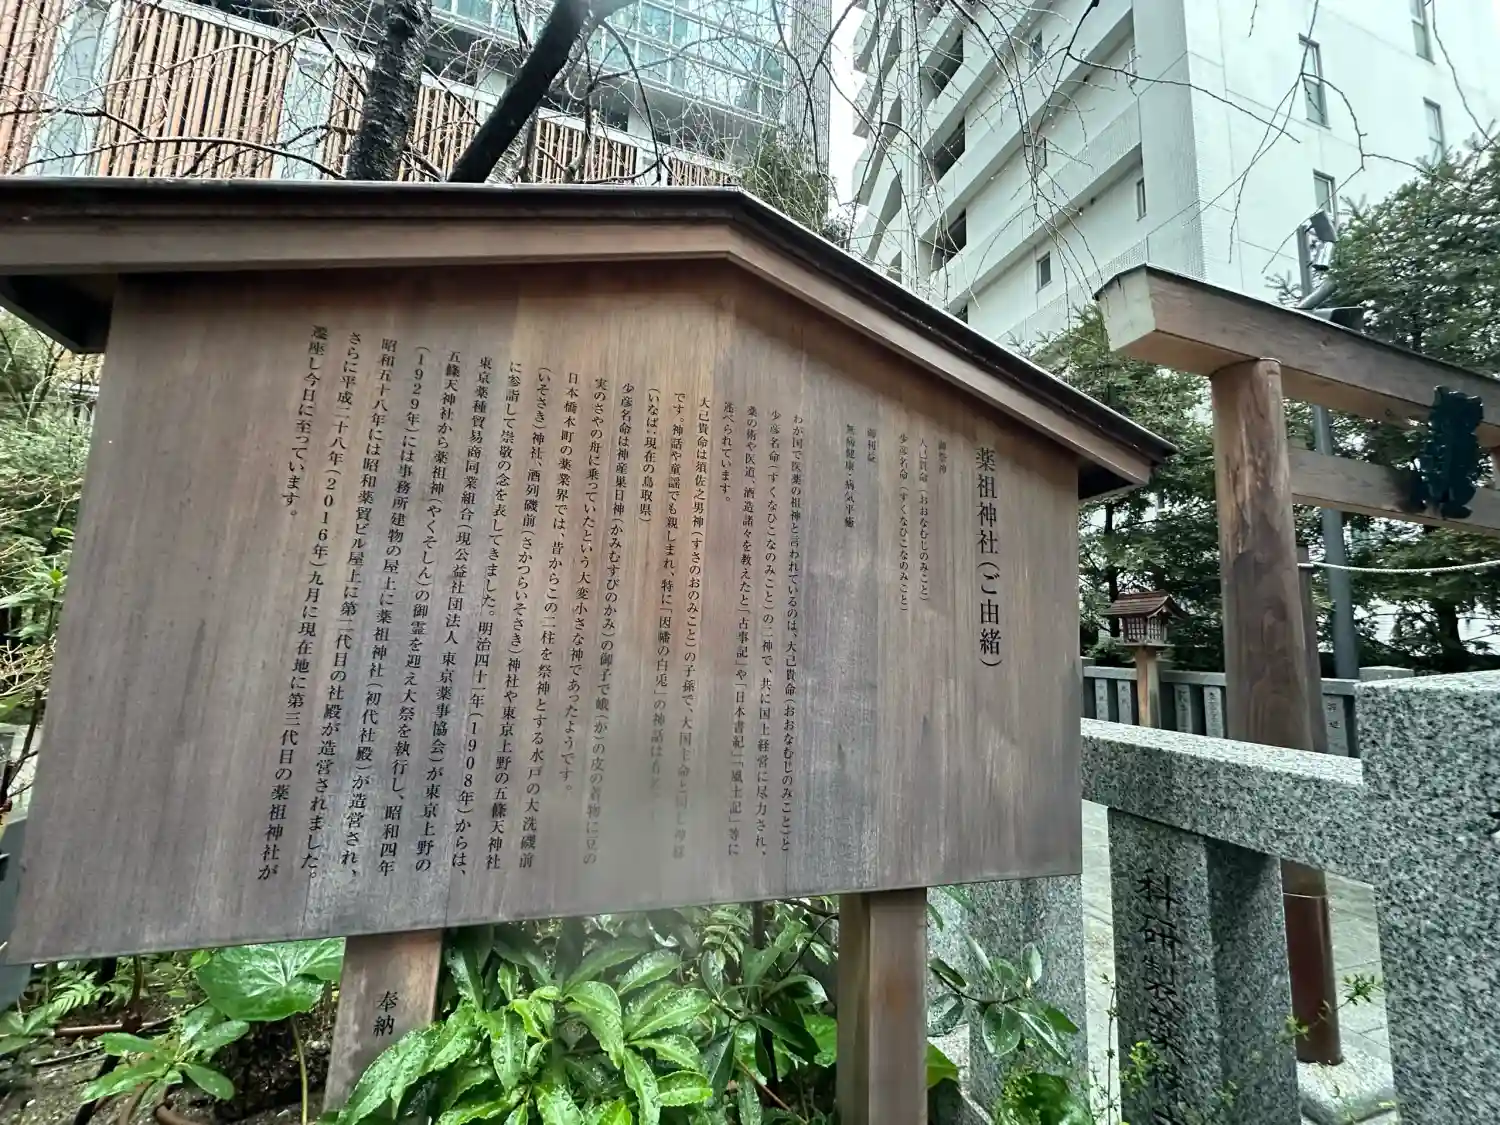 薬祖神社(ご由緒)
御祭神
大己貴命(おおなむじのみこと)
少彦名命(すくなひこなのみこと)
御利益
無病健康・病気平癒
わが国で医薬の祖神と言われているのは、大己貴命(おおなむじのみこと)と
少彦名命(すくなひこなのみこと)の二神で、共に国土経営に尽力され、
薬の術や医道、酒造諸々を教えたと「古事記」や「日本書紀」「風土記」等に
述べられています。
大己貴命は須佐之男神(すさのおのみこと)の子孫で、大国主命と同じ神様
です。神話や童謡でも親しまれ、特に「因幡の白兎」の神話は有名
(いなば:現在の鳥取県)
少彦名命は神産巣日神(かみむすびのかみ)の御子で蛾(か)の皮の着物に豆の
実のさやの舟に乗っていたという大変小さな神であったようです。
日本橋本町の薬業界では、昔からこの二柱を祭神とする水戸の大洗磯前
(いそさき)神社、酒列磯前(さかつらいそさき)神社や東京上野の五條天神社
に参詣して崇敬の念を表してきました。明治四十一年(1908年)からは、
東京薬種貿易商同業組合(現公益社団法人 東京薬事協会)が東京上野の
五條天神社から薬祖神(やくそしん)の御霊を迎え大祭を執行し、昭和四年
(1929年)には事務所建物の屋上に薬祖神社(初代社殿)が造営され、
昭和五十八年には昭和薬貿ビル屋上に第二代目の社殿が造営されました。
さらに平成二十八年(2016年)九月に現在地に第三代目の薬祖神社が
遷座し今日に至っています。
奉納
科研製薬株